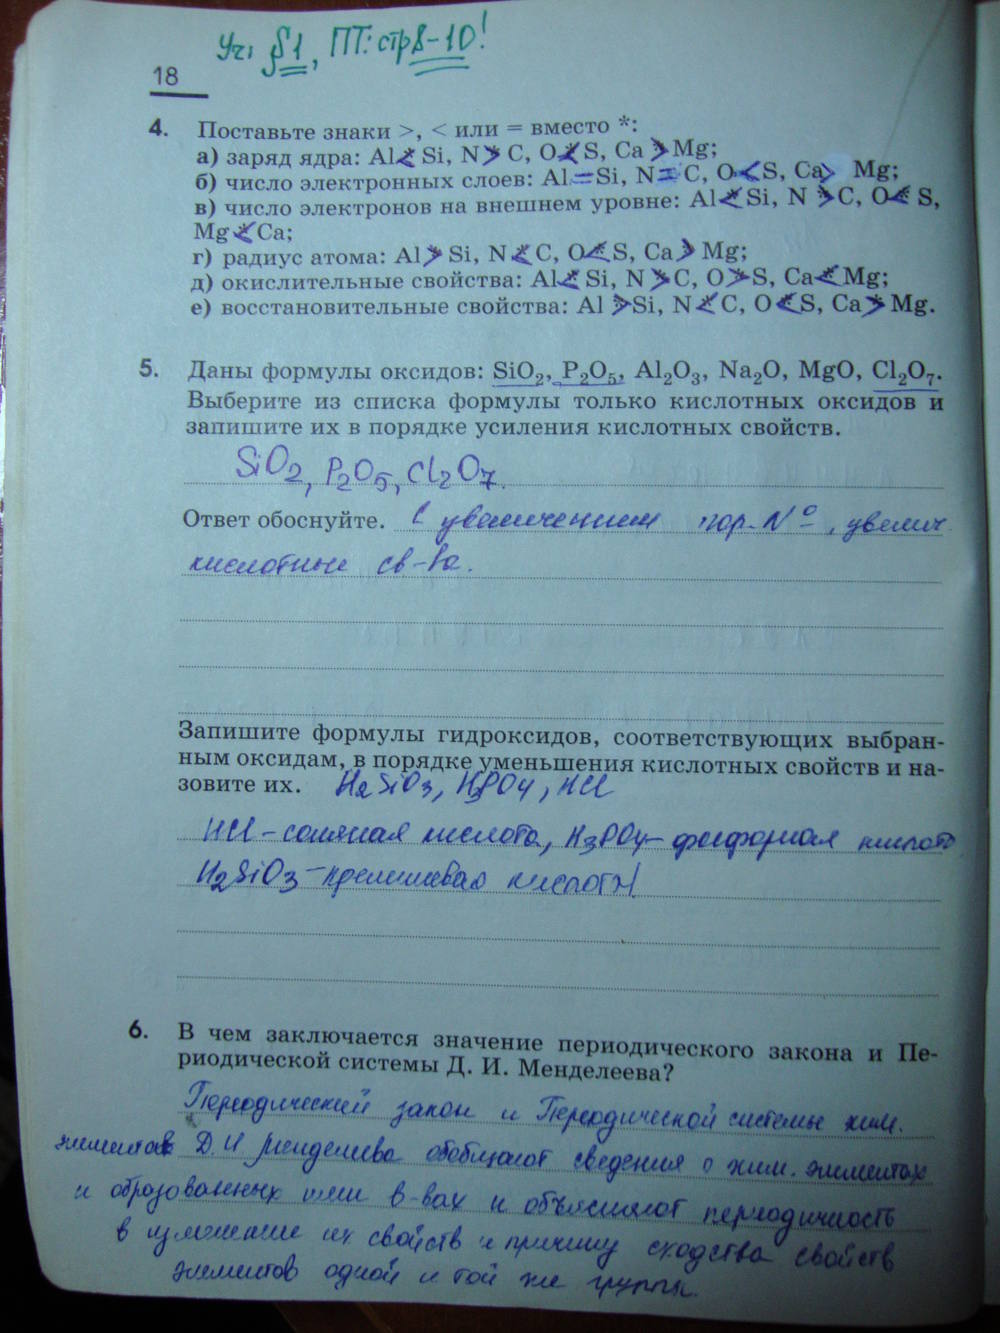 Уч. §1, ПТ: стр 8-10!
18
4. Поставьте знаки >, < или = вместо *:
а) заряд ядра: Al < Si, N > C, O < S, Ca > Mg;
б) число электронных слоев: Al = Si, N = C, O < S, Ca > Mg;
в) число электронов на внешнем уровне: Al < Si, N > C, O < S,
Mg < Ca;
г) радиус атома: Al > Si, N < C, O < S, Ca > Mg;
д) окислительные свойства: Al < Si, N > C, O > S, Ca < Mg;
е) восстановительные свойства: Al > Si, N < C, O < S, Ca > Mg.
5. Даны формулы оксидов: SiO₂, P₂O₅, Al₂O₃, Na₂O, MgO, Cl₂O₇.
Выберите из списка формулы только кислотных оксидов и
запишите их в порядке усиления кислотных свойств.
SiO₂, P₂O₅, Cl₂O₇.
Ответ обоснуйте. С увеличением пор. №, увелич.
кислотные св-ва.
Запишите формулы гидроксидов, соответствующих выбран-
ным оксидам, в порядке уменьшения кислотных свойств и на-
зовите их. H₂SiO₃, H₃PO₄, HCl
HCl – соляная кислота, H₃PO₄ – фосфорная кислота
H₂SiO₃ – кремниевая кислота
6. В чем заключается значение периодического закона и Пе-
риодической системы Д. И. Менделеева?
Периодический закон и Периодической системы хим.
элементов Д. И Менделеева обобщают сведения о хим. элементах
и образованных ими в-вах и объясняют периодичность
в изменение их свойств и причину сходства свойств
элементов одной и той же группы.